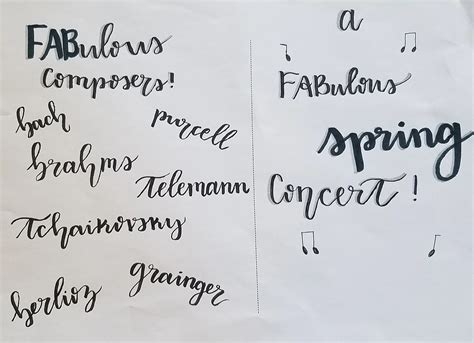 FABulous
Composers!
bach
purcell
brahms
Telemann
Tchaikovsky
grainger
berlioz
a
FABulous
spring
Concert!